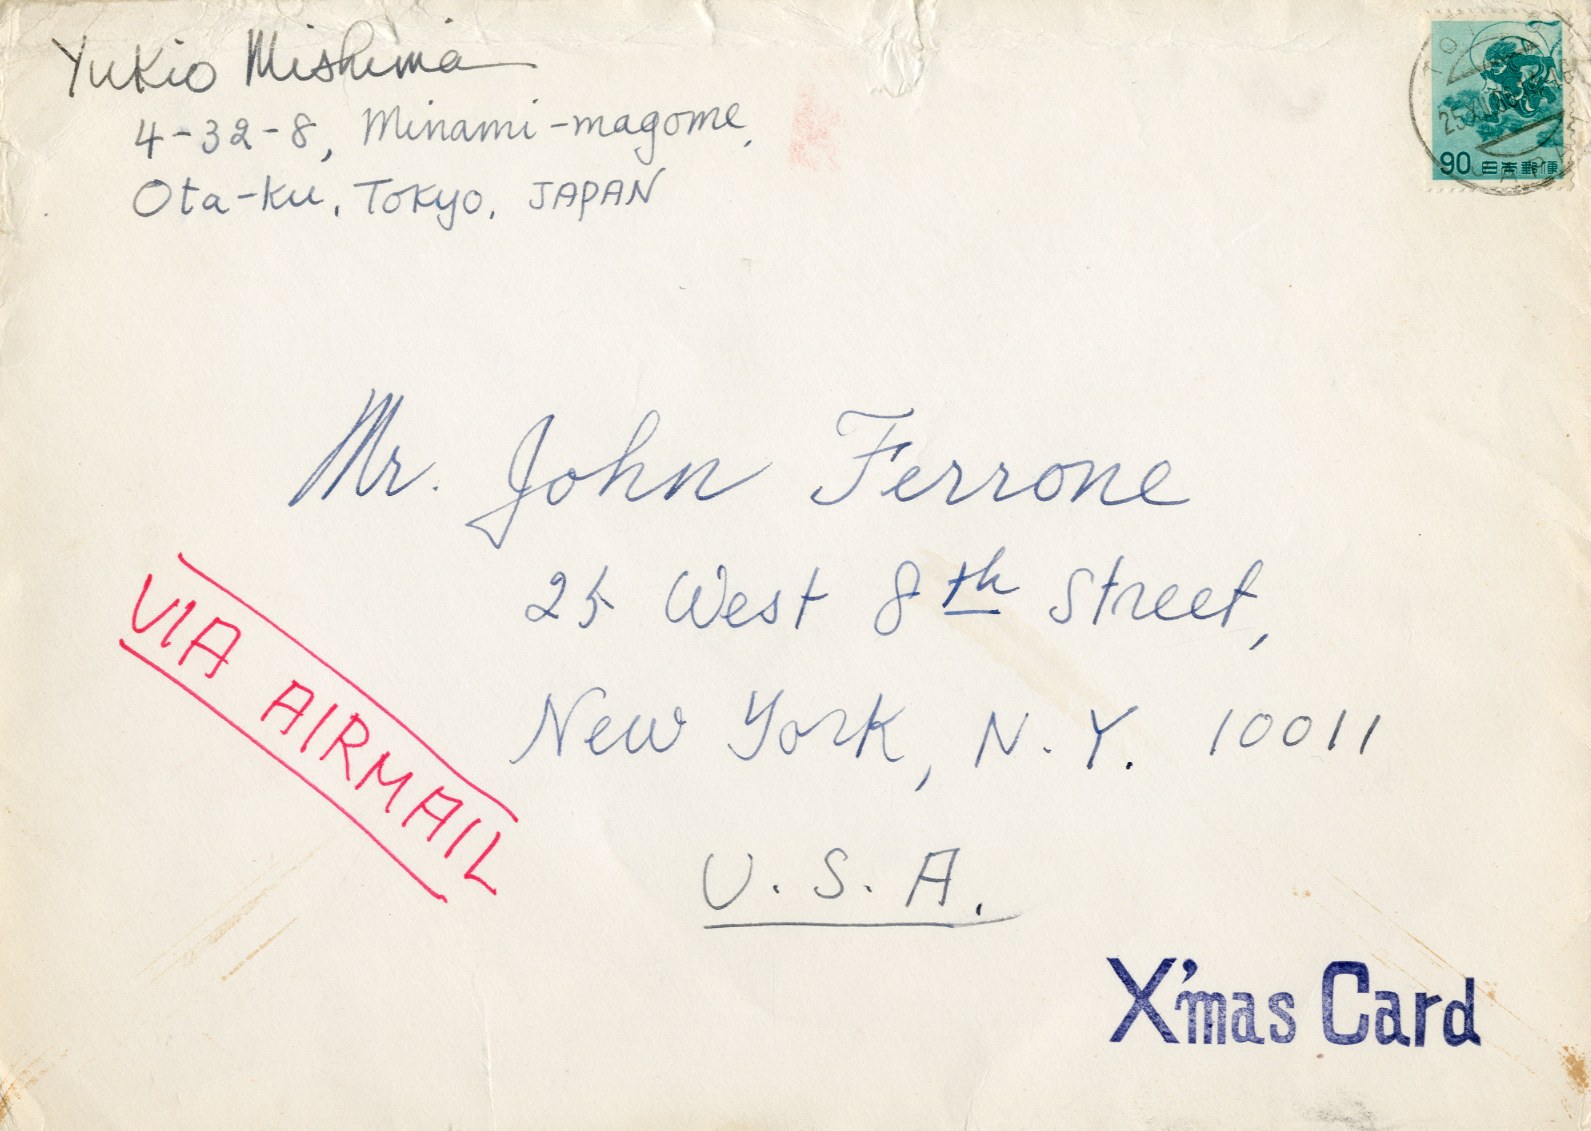 Yukio Mishima
4-32-8, Minami-magome,
Ota-ku, Tokyo, JAPAN
90 日本郵便
Mr. John Ferrone
25 West 8th Street,
New York, N.Y. 10011
U.S.A.
VIA AIRMAIL
X'mas Card